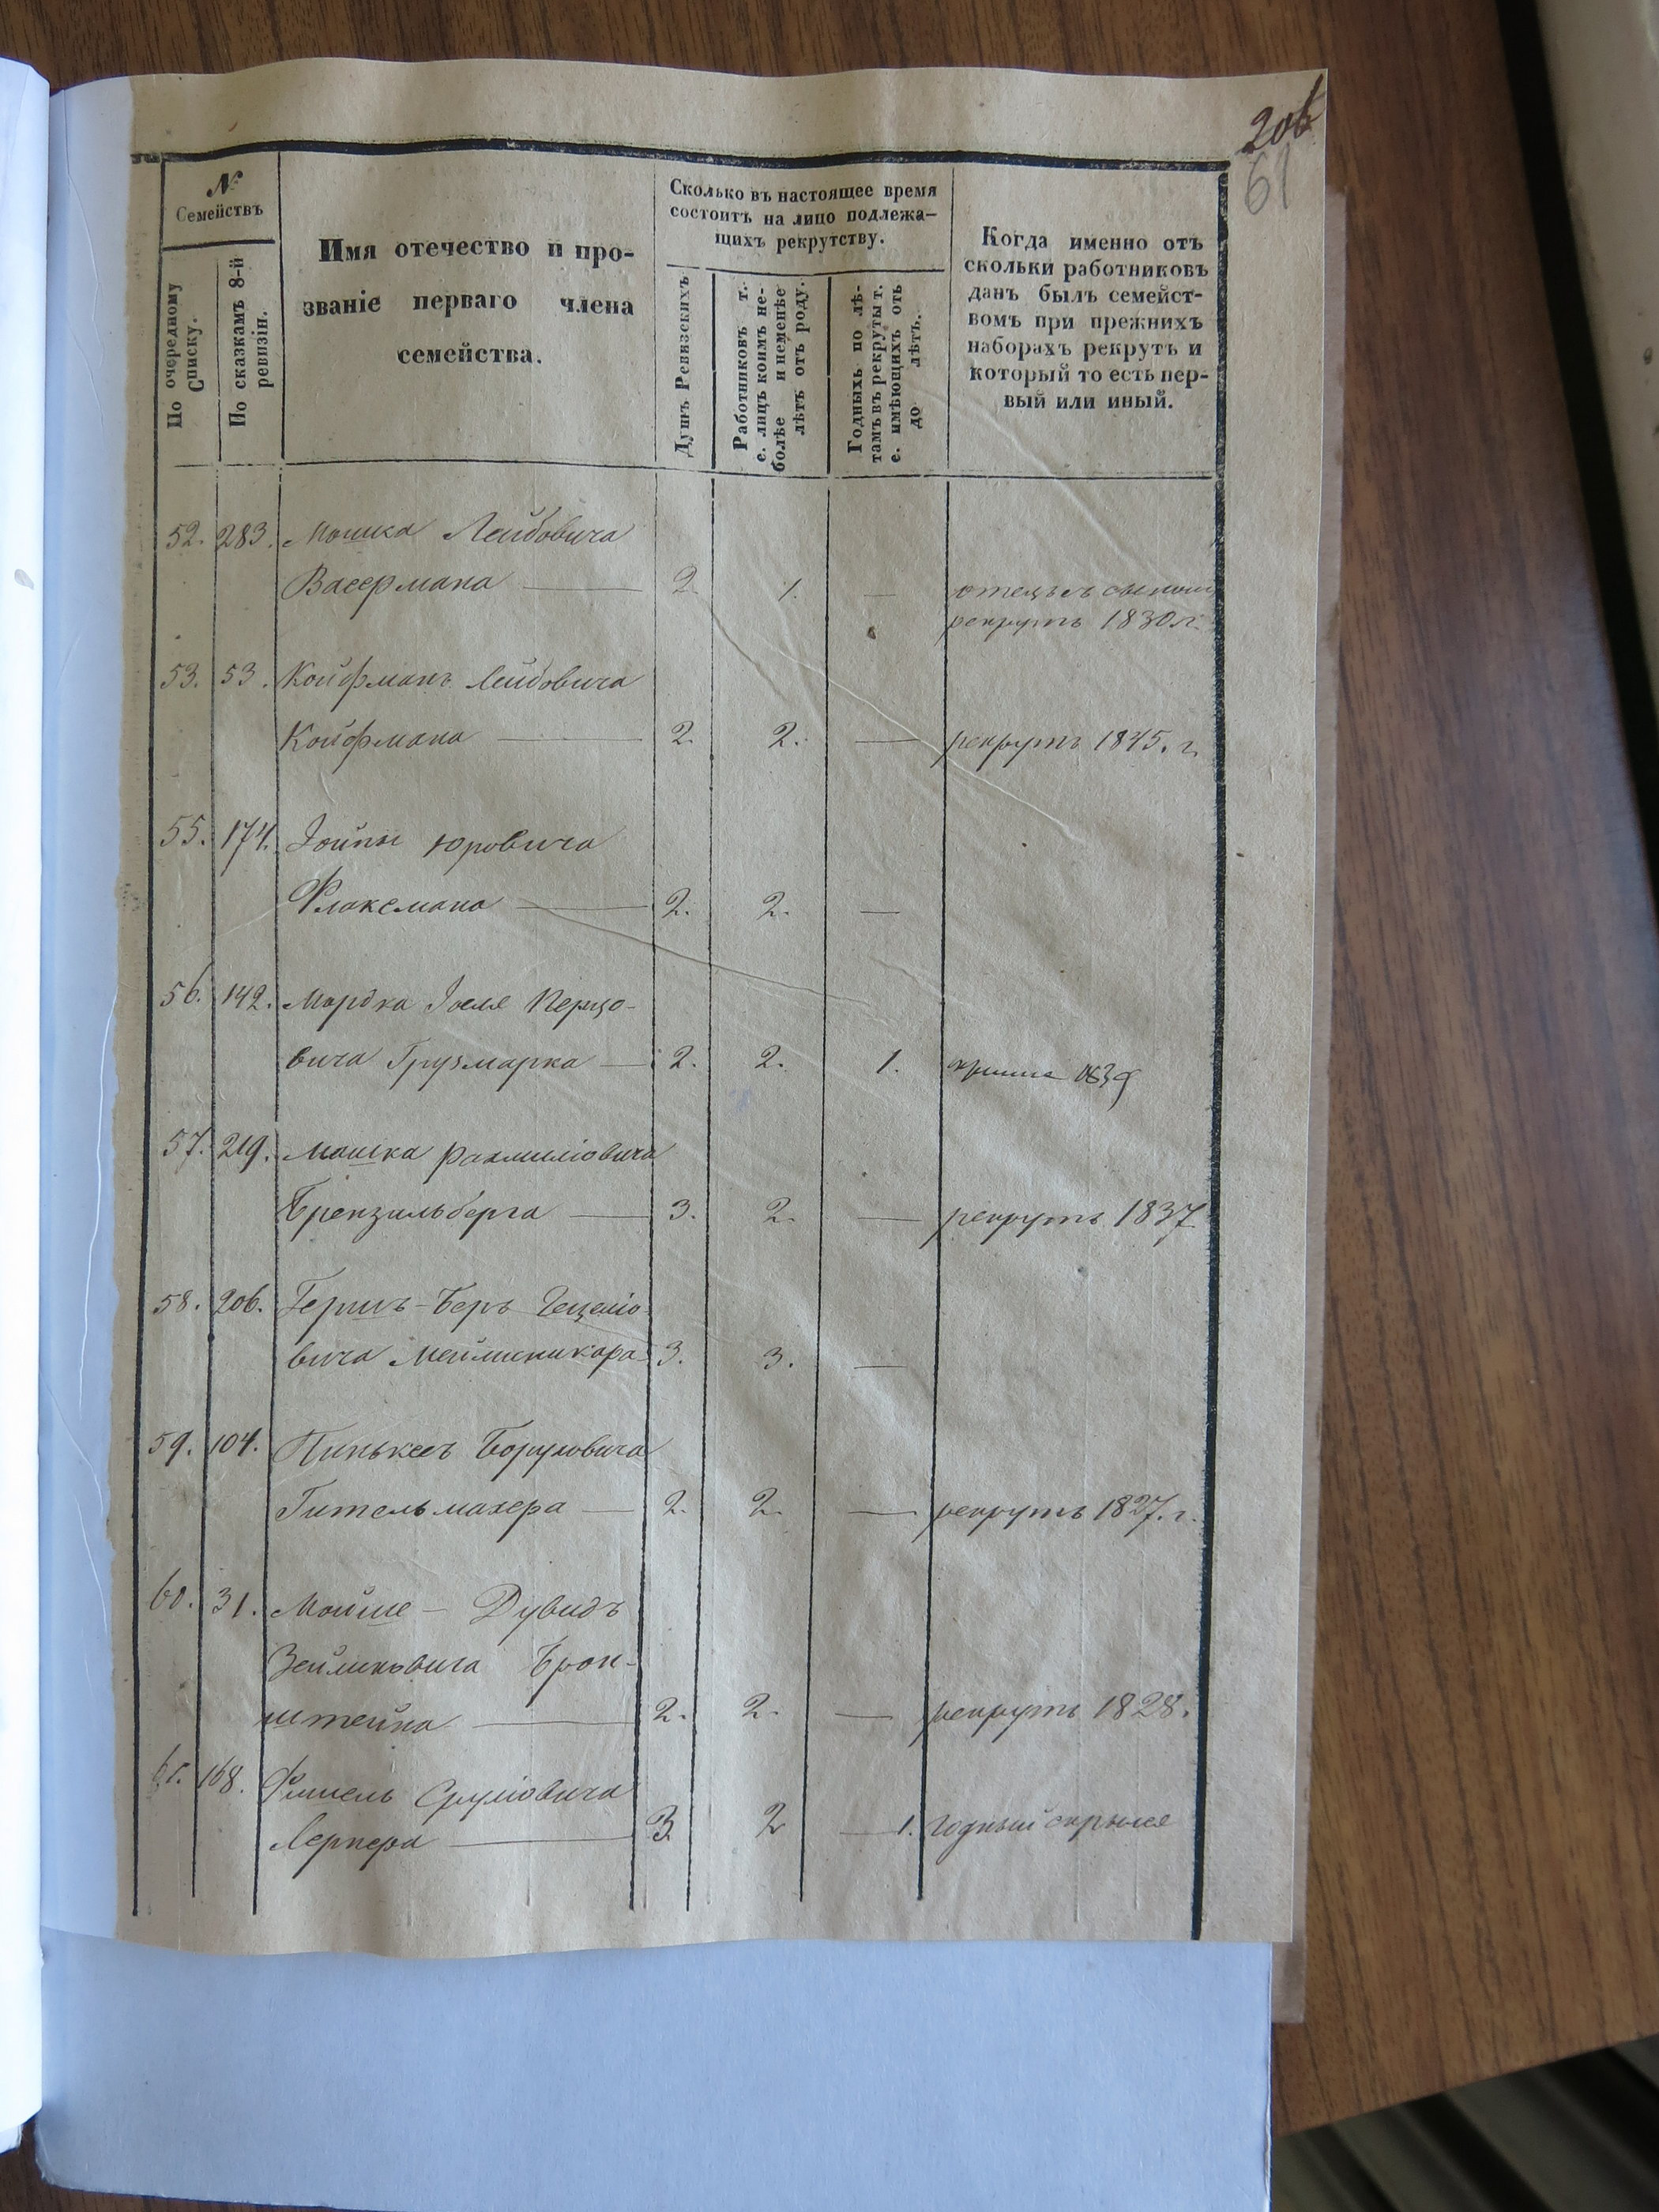 206
61
№
Семействъ
По очередному
Списку.
По сказкамъ 8-й
ревизіи.
Имя отечество и про-
званіе перваго члена
семейства.
Сколько въ настоящее время
состоитъ на лицо подлежа-
щихъ рекрутству.
Душъ Ревизскихъ
Работниковъ т.
е. лицъ коимъ не-
болѣе и неменѣе
лѣтъ отъ роду.
Годныхъ по лѣ-
тамъ въ рекруты т.
е. имѣющихъ отъ
до лѣтъ.
Когда именно отъ
скольки работниковъ
данъ былъ семейст-
вомъ при прежнихъ
наборахъ рекрутъ и
который то есть пер-
вый или иный.
52. 283. Мошка Лейбовича
Васермана — 2. 1. — отецъ съ сыномъ
рекрутъ 1830 г.
53. 53. Койфманъ Лейбовича
Койфмана — 2. 2. — рекрутъ 1845. г.
55. 174. Іойны Юровича
Флаксмана — 2. 2. —
56. 142. Мордка Іоеля Перцо-
вича Грузмарка — 2. 2. 1. 1839
57. 219. Мошка Рахмиліовича
Брензильберга — 3. 2. — рекрутъ 1837
58. 206. Гершъ-Беръ Гецеліо-
вича 3. 3. —
59. 104. Пинькесъ Боруховича
Гительмахера — 2. 2. — рекрутъ 1827. г.
60. 31. Мойше - Дувидъ
Зейликовича Брон-
штейна — 2. 2. — рекрутъ 1828.
61. 168. Фишель Сруліовича
Лернера — 3. 2 — 1. годный скрылся